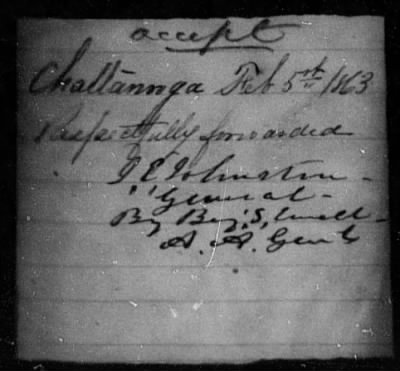 accept
Chattannoga Feb 5th 1863
Respectfully forwarded
J E Johnston
General
By Benj. S. Ewell
A. A. Genl